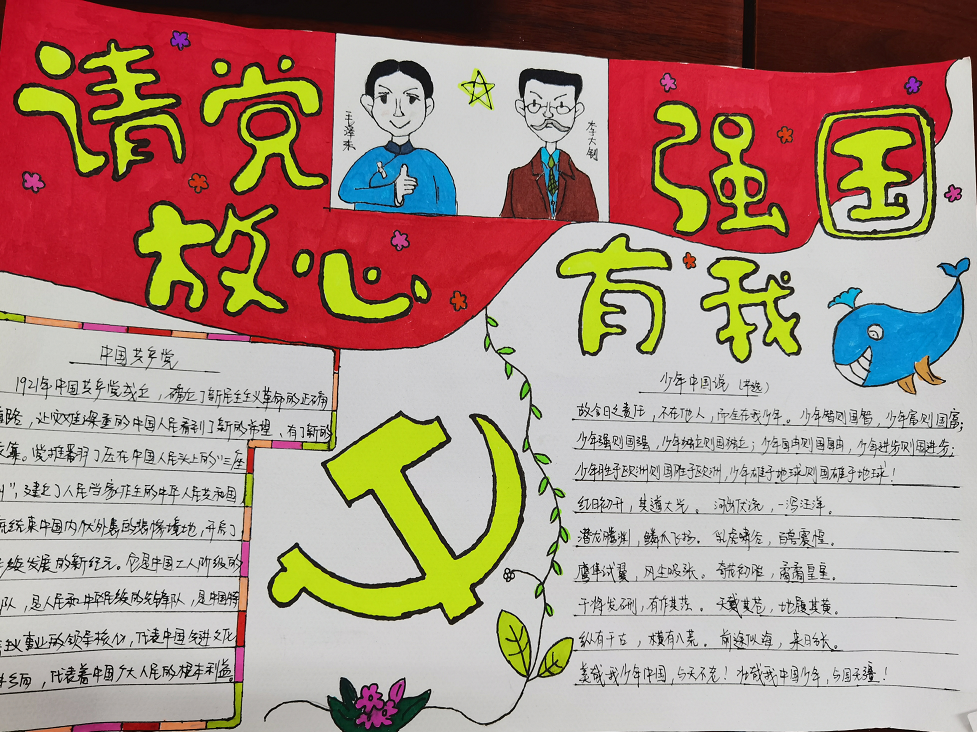 请党
放心
强国
有我
毛泽东
李大钊
中国共产党
1921年中国共产党成立，确立了新民主主义革命的正确
道路，让灾难深重的中国人民看到了新的希望，有了新的
集。党推翻了压在中国人民头上的"三座
山"，建立了人民当家作主的中华人民共和国
结束中国内忧外患的悲惨境地，开启了
续发展的新纪元。它是中国工人阶级的
队，是人民和中华民族的先锋队，是中国特
事业的领导核心，代表中国先进文化
方向，代表着中国广大人民的根本利益。
少年中国说（节选）
故今日之责任，不在他人，而全在我少年。少年智则国智，少年富则国富；
少年强则国强，少年独立则国独立；少年自由则国自由，少年进步则国进步；
少年胜于欧洲则国胜于欧洲，少年雄于地球则国雄于地球！
红日初升，其道大光。河出伏流，一泻汪洋。
潜龙腾渊，鳞爪飞扬。乳虎啸谷，百兽震惶。
鹰隼试翼，风尘吸张。奇花初胎，矞矞皇皇。
干将发硎，有作其芒。天戴其苍，地履其黄。
纵有千古，横有八荒。前途似海，来日方长。
美哉我少年中国，与天不老！壮哉我中国少年，与国无疆！